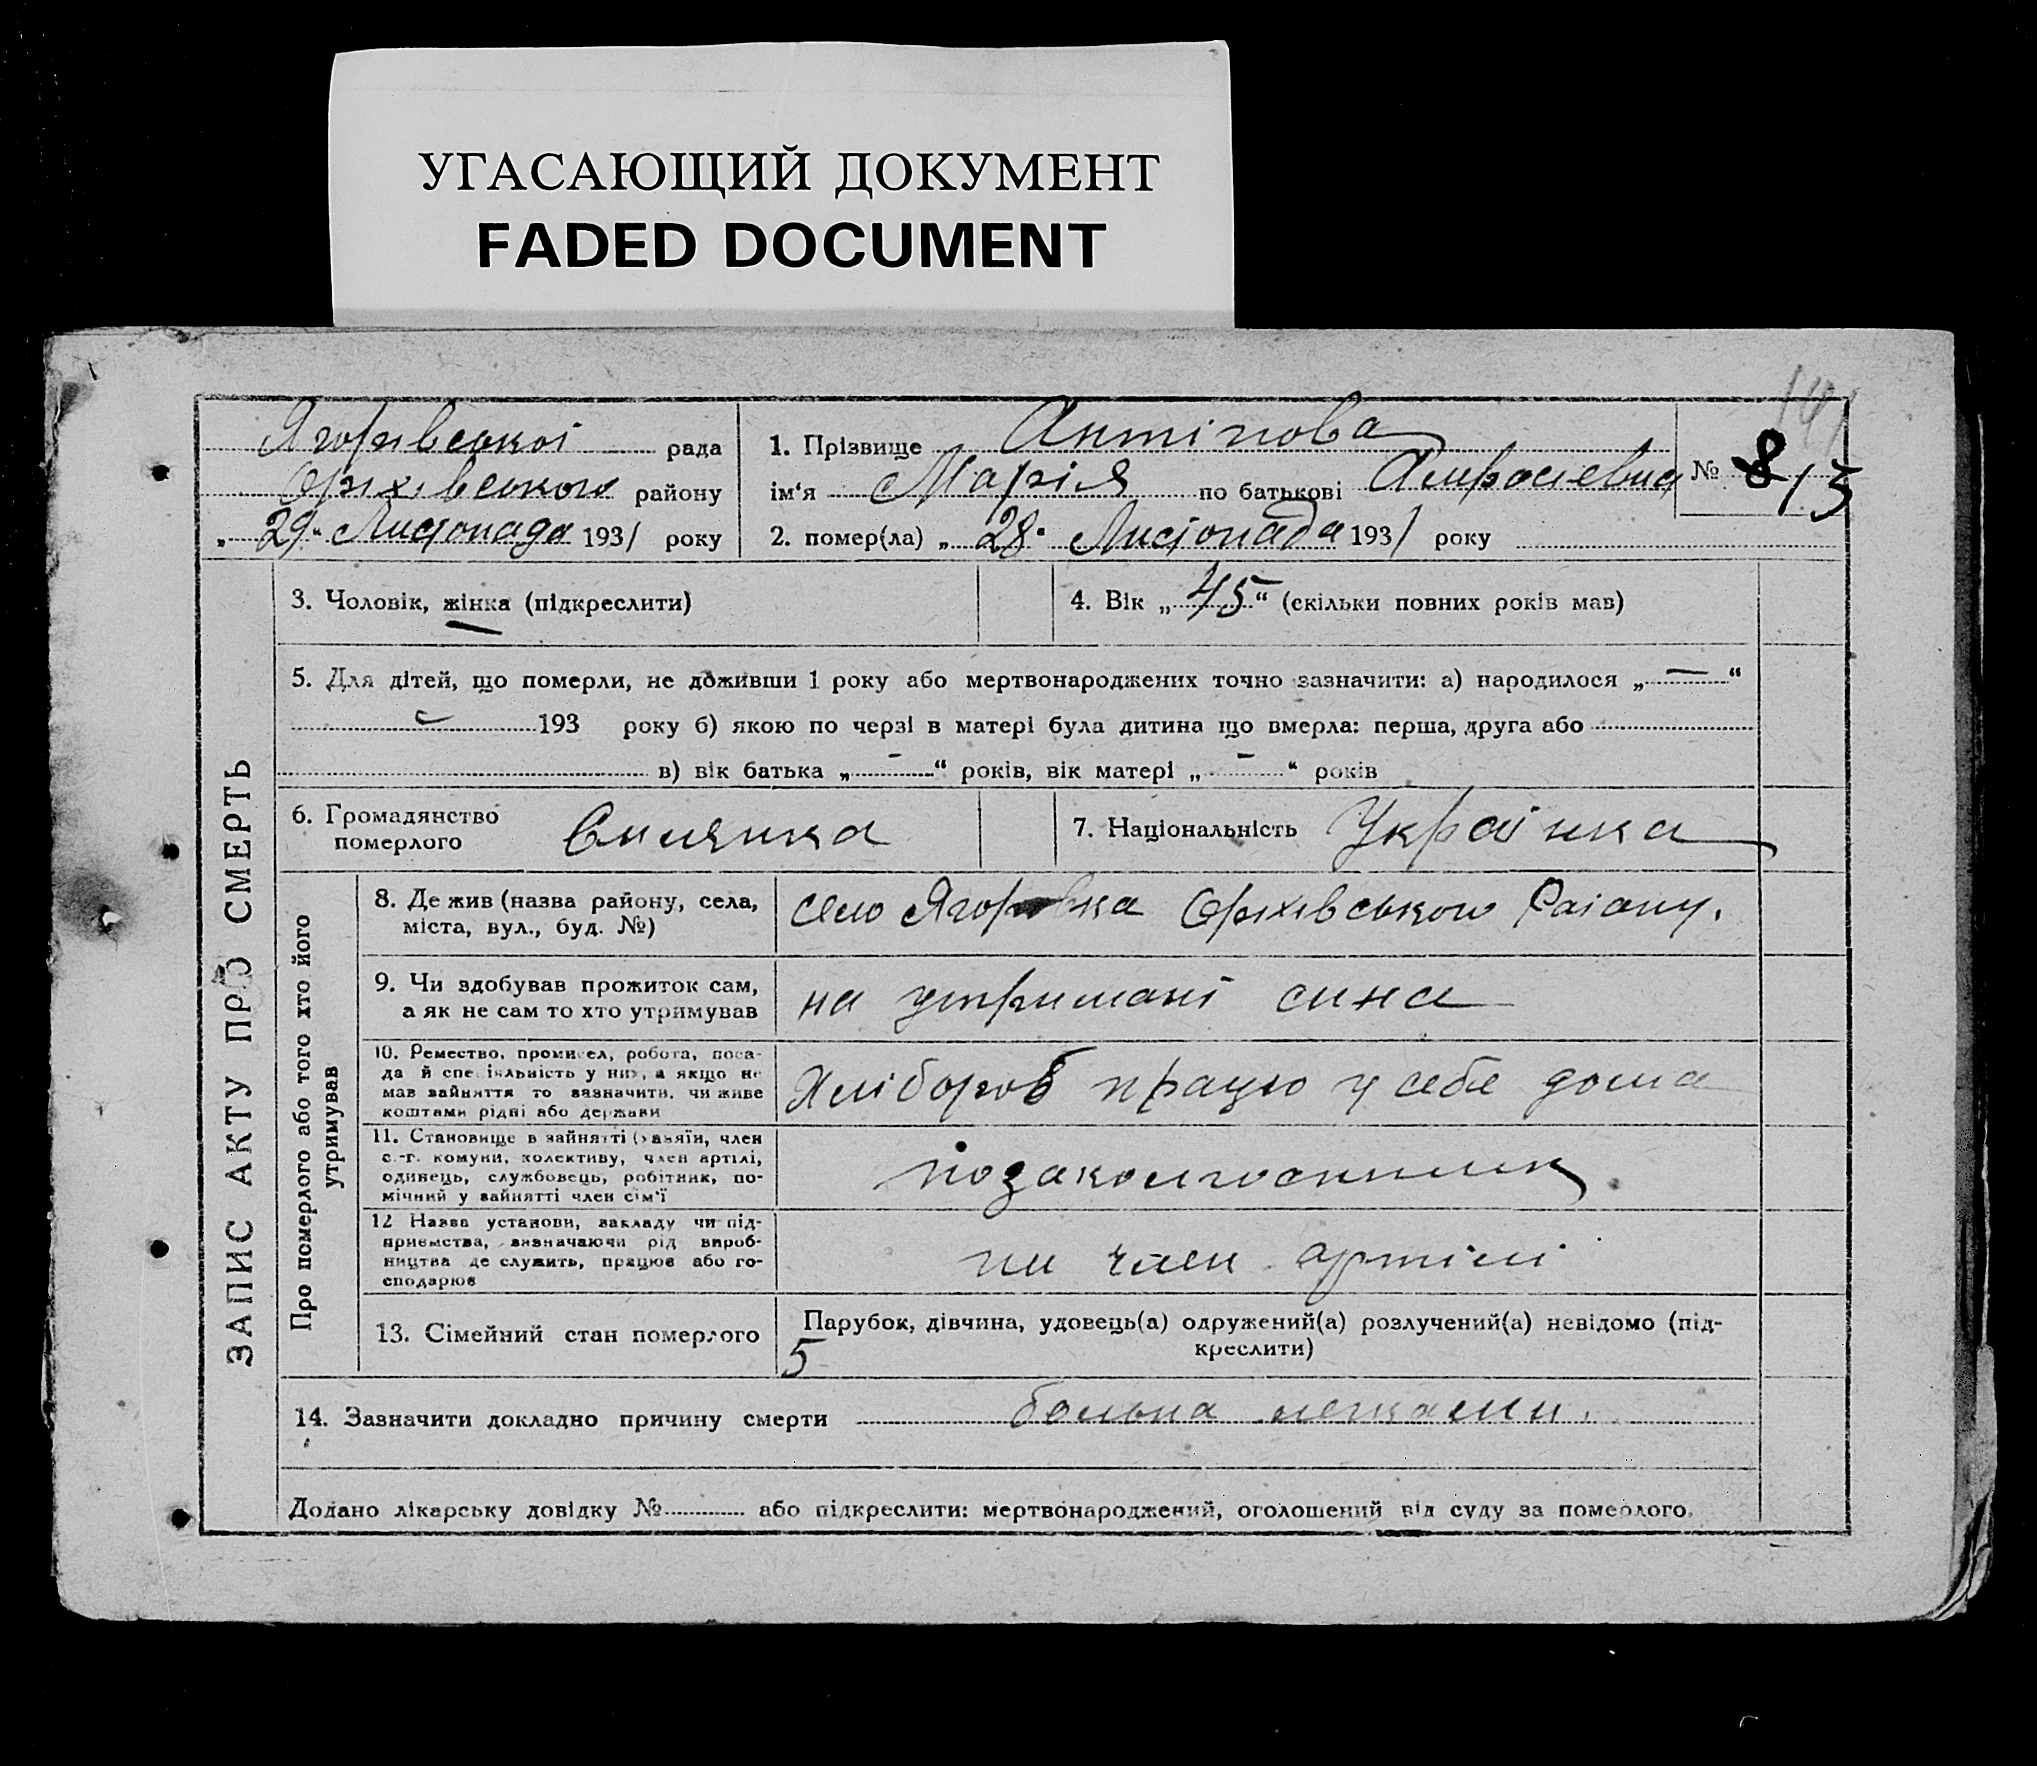 УГАСАЮЩИЙ ДОКУМЕНТ
FADED DOCUMENT
Ягорівської рада
Оріхівського району
„ 29 “ Листопада 1931 року
1. Прізвище Антіпова
ім‘я Марія по батькові Амросієвна
2. помер(ла) „ 28 “ Листопада 1931 року
№ 8 13
ЗАПИС АКТУ ПРО СМЕРТЬ
3. Чоловік, жінка (підкреслити)
4. Вік „ 45 “ (скільки повних років мав)
5. Для дітей, що померли, не доживши 1 року або мертвонароджених точно зазначити: а) народилося „ — “
193 року б) якою по черзі в матері була дитина що вмерла: перша, друга або
в) вік батька „ - “ років, вік матері „ - “ років
6. Громадянство
померлого
7. Національність Українка
Про померлого або того хто його
утримував
8. Де жив (назва району, села,
міста, вул., буд. №)
село Ягоровка Оріхівського Раіону.
9. Чи здобував прожиток сам,
а як не сам то хто утримував
на утримані сина
10. Ремество, промисел, робота, поса-
да й спеціяльність у них, а якщо не
мав зайняття то зазначити, чи живе
коштами рідні або держави
Хліборов працю у себе дома
11. Становище в зайнятті (хазяїн, член
с.-г. комуни, колективу, член артілі,
одинець, службовець, робітник, по-
мічний у зайнятті член сім'ї
позаколгоспник
12 Назва установи, закладу чи під-
приємства, визначаючи рід вироб-
ництва де служить, працює або го-
сподарює
ни член артілі
13. Сімейний стан померлого
Парубок, дівчина, удовець(а) одружений(а) розлучений(а) невідомо (під-
креслити)
5
14. Зазначити докладно причину смерти больна
Додано лікарську довідку № або підкреслити: мертвонароджений, оголошений від суду за померлого.